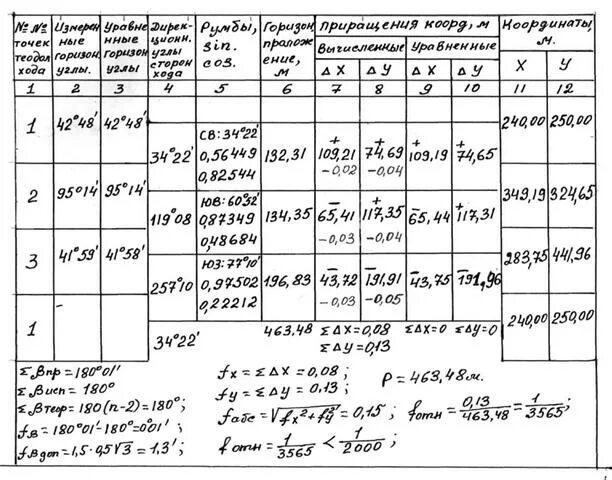 №№ точек теодол хода | Измерен ные горизон. углы. | Уравне нные горизон углы | Дирек- ционн. углы сторон хода | Румбы, sin. cos. | Горизон. пролож ение, м | Приращения коорд, м | Координаты, м.
Вычисленные | Уравненные | X | У
Δ X | Δ У | Δ X | Δ У
1 | 2 | 3 | 4 | 5 | 6 | 7 | 8 | 9 | 10 | 11 | 12
1 | 42°48' | 42°48' | 240,00 | 250,00
34°22' | СВ: 34°22' 0,56449 0,82544 | 132,31 | +109,21 -0,02 | +74,69 -0,04 | +109,19 | +74,65
2 | 95°14' | 95°14' | 349,19 | 324,65
119°08 | ЮВ: 60°52' 0,87349 0,48684 | 134,35 | -65,41 -0,03 | +117,35 -0,04 | -65,44 | +117,31
3 | 41°59' | 41°58' | 283,75 | 441,96
257°10 | ЮЗ: 77°10' 0,97502 0,22212 | 196,83 | -43,72 -0,03 | -191,91 -0,05 | -43,75 | -191,96
1 | - | 240,00 | 250,00
34°22' | 463,48 | ΣΔX=0,08 | ΣΔX=0 | ΣΔУ=0
ΣΔУ=0,13
Σβпр = 180°01'
Σβисп = 180°
Σβтеор = 180(n-2) = 180°;
fβ = 180°01' - 180° = 0°01' ;
fβдоп = 1,5 · 0,5√3 = 1,3' ;
fx = ΣΔX = 0,08 ;
fy = ΣΔУ = 0,13 ;
fабс = √fx²+fy² = 0,15 ;
fотн = 1/3565 < 1/2000 ;
P = 463,48 м.
fотн = 0,13/463,48 = 1/3565 ;